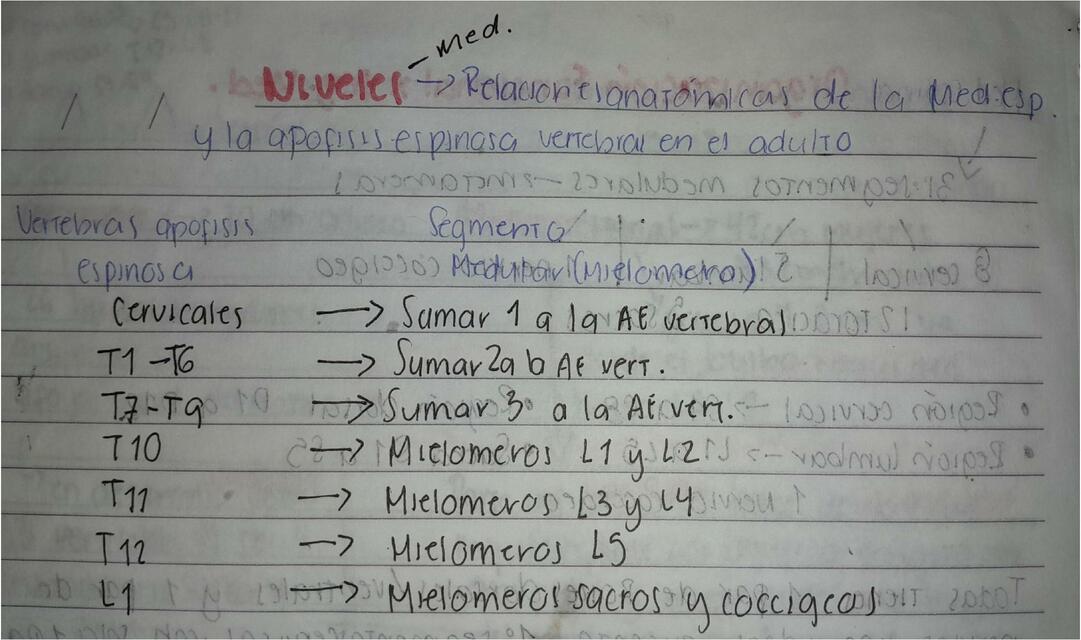 med.
Niveles → Relaciones anatómicas de la Med. esp.
y la apofisis espinosa vertebral en el adulto
Vertebras apofisis espinosa
Segmento Medular (Mielomero)
Cervicales → Sumar 1 a la AE vertebral
T1-T6 → Sumar 2 a la AE vert.
T7-T9 → Sumar 3 a la AE vert.
T10 → Mielomeros L1 y L2
T11 → Mielomeros L3 y L4
T12 → Mielomeros L5
L1 → Mielomeros sacros y coccigeos